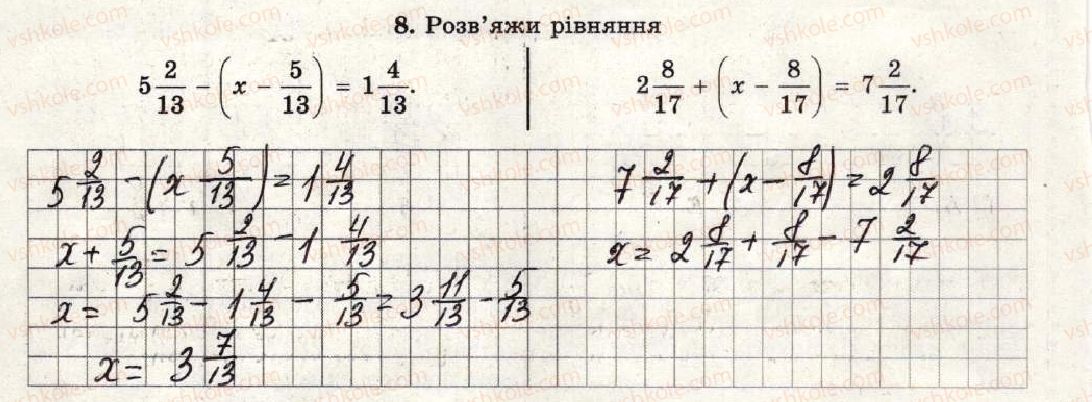 8. Розв'яжи рівняння
5 2/13 − (x − 5/13) = 1 4/13.
2 8/17 + (x − 8/17) = 7 2/17.
5 2/13 − (x 5/13) = 1 4/13
x + 5/13 = 5 2/13 − 1 4/13
x = 5 2/13 − 1 4/13 − 5/13 = 3 11/13 − 5/13
x = 3 7/13
7 2/17 + (x − 8/17) = 2 8/17
x = 2 8/17 + 8/17 − 7 2/17
vshkole.com